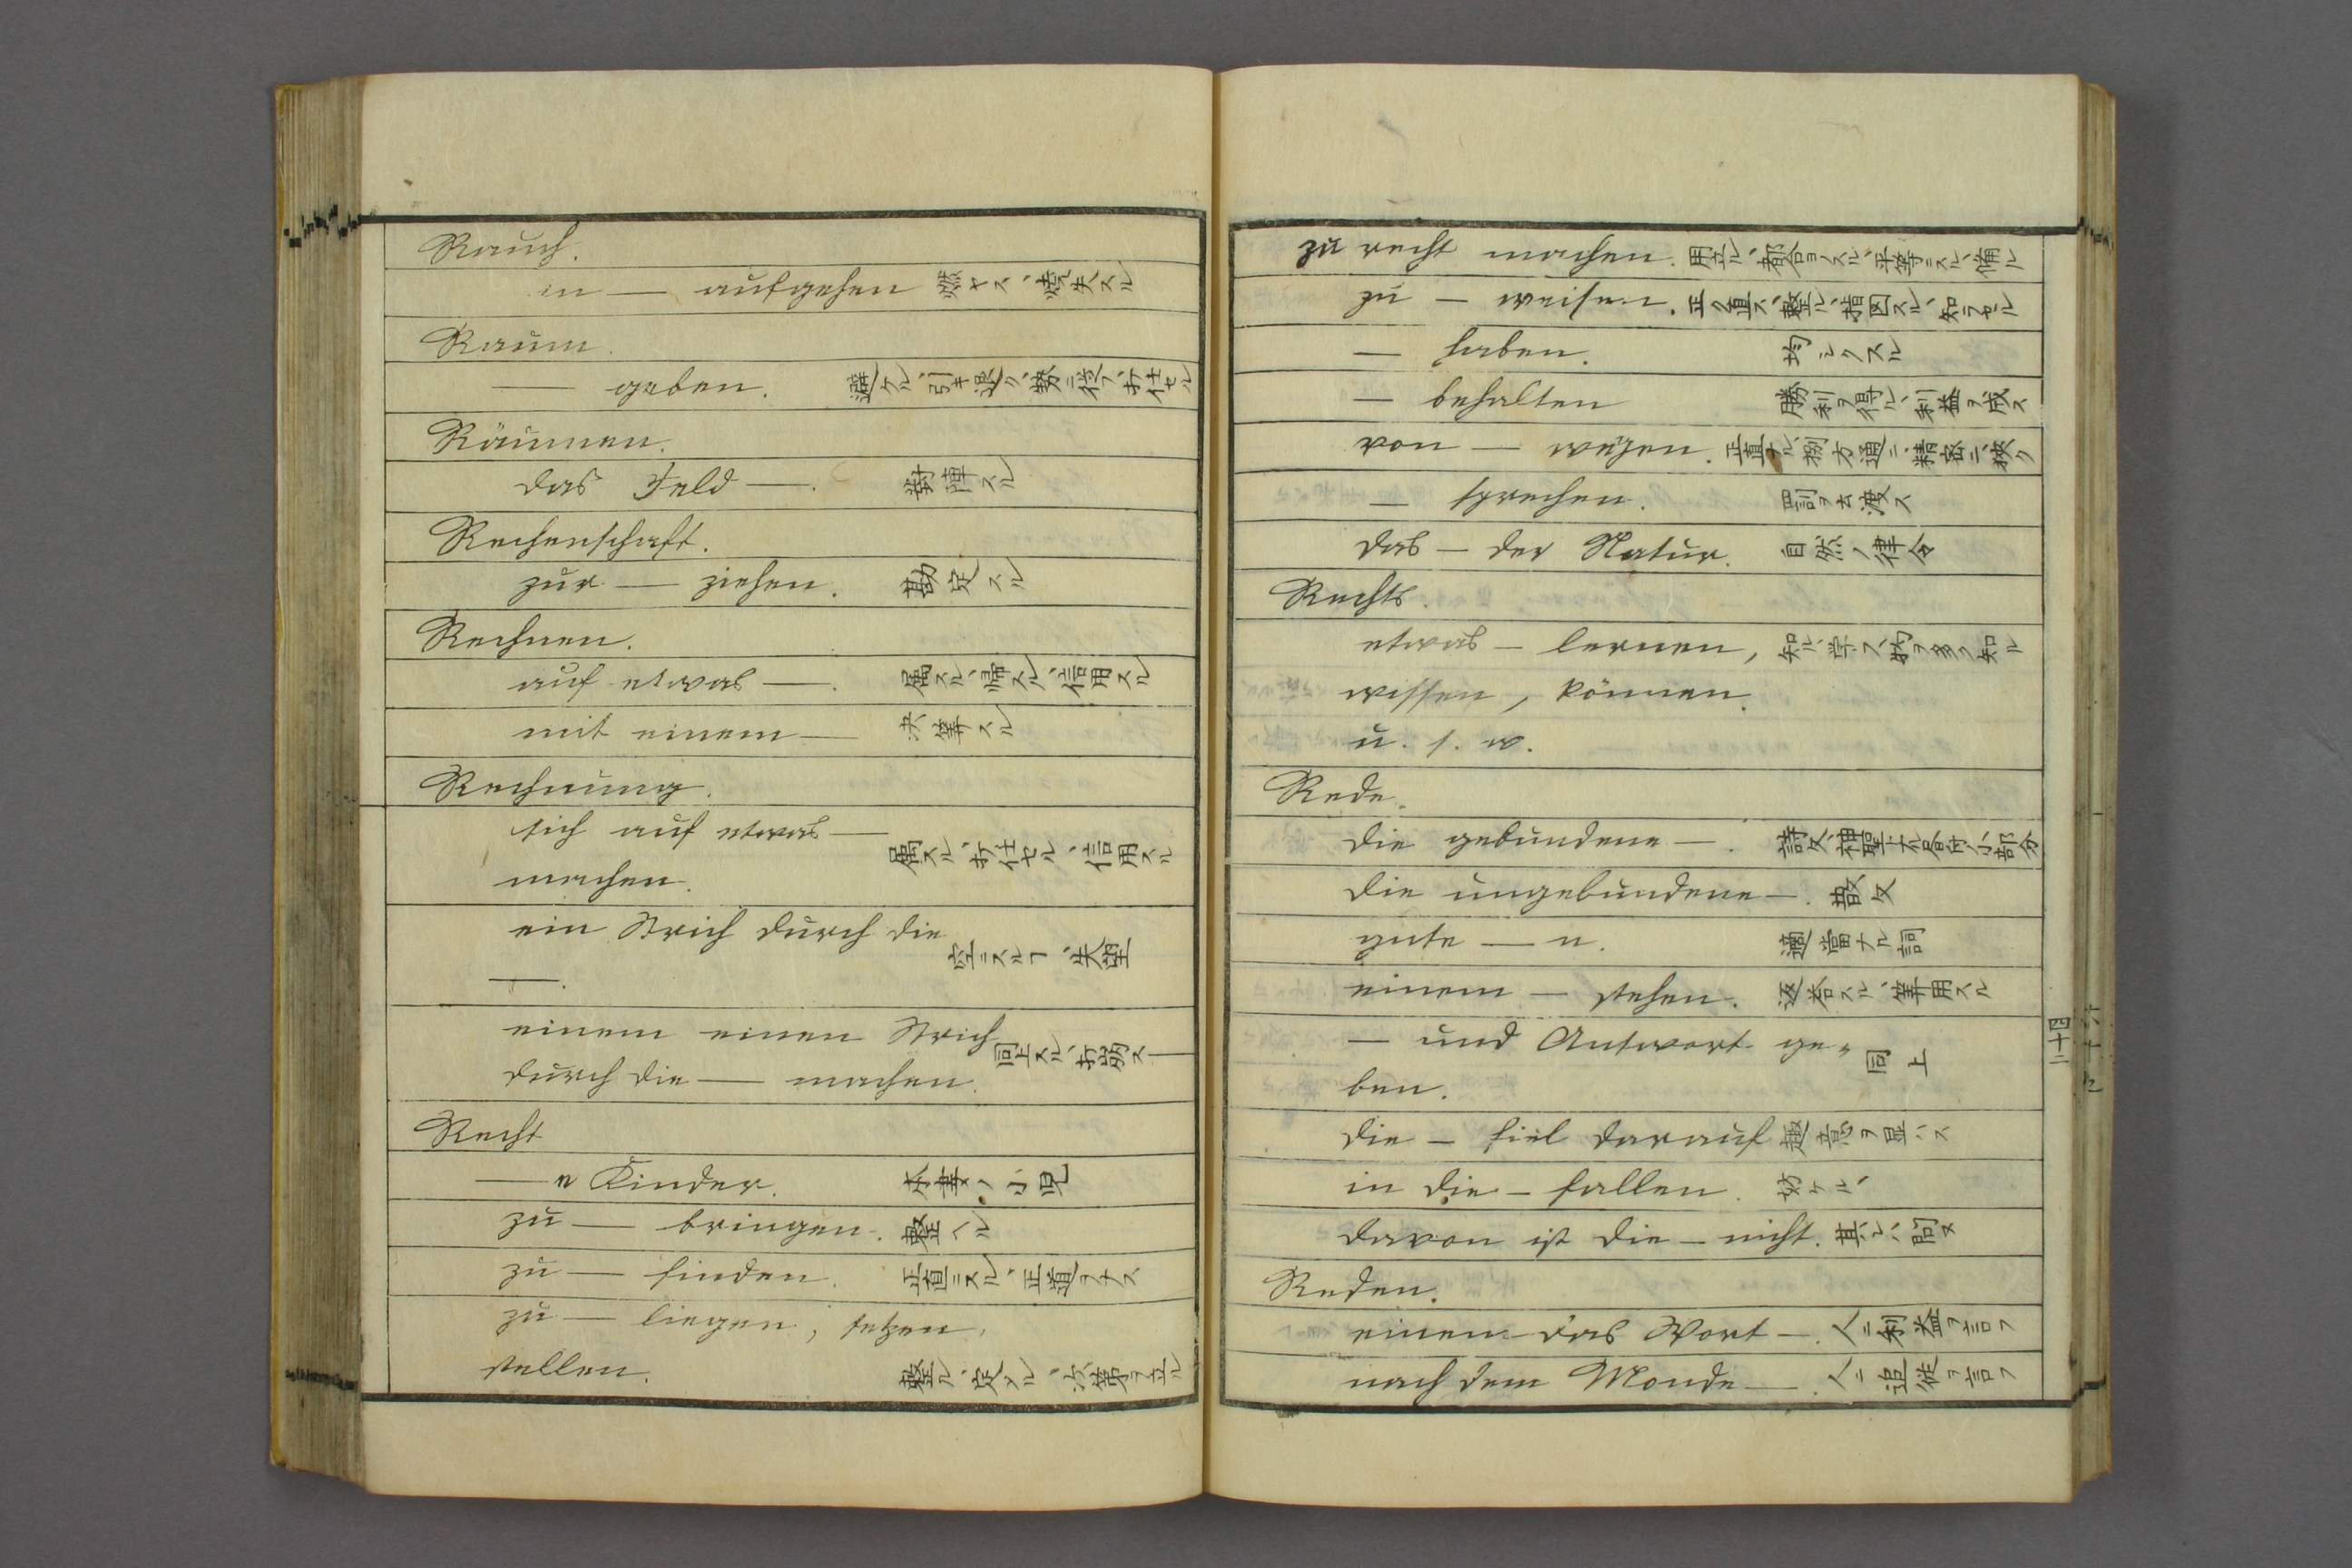 Rauch.
in — aufgehen 燃ヤス、燒失スル
Raum.
— geben. 避クル、引キ退ク、勢ニ従フ、打任セル
Räumen.
das Feld —. 對陣スル
Rechenschaft.
zur — ziehen. 勘定スル
Rechnen.
auf etwas —. 属スル、帰スル、信用スル
mit einem — 决算スル
Rechnung.
sich auf etwas —
machen. 属スル、打任セル、信用スル
ein Strich durch die
—. 空ニスルヿ、失望
einem einen Strich
durch die — machen. 同上スル、打毀ス
Recht
— e Kinder. 本妻ノ小児
zu — bringen. 整ヘル
zu — finden. 正直ニスル、正道ヲナス
zu — liegen, setzen,
stellen. 整ル、定メル、次第ヲ立ル
zu recht machen. 用立ル、都合ヨクスル、平等ニスル、備ル
zu — weisen. 正直ス、整ル、指図スル、知ラセル
— haben. 均シクスル
— behalten 勝利ヲ得ル、利益ヲ成ス
von — wegen. 正直ナル、方通ニ、精密ニ、狹ク
— sprechen. 罰ヲ云渡ス
das — der Natur. 自然ノ律令
Rechts.
etwas — lernen, 知ル、学フ、物ヲ多ク知ル
wissen, können.
u. s. w.
Rede.
die gebundene —. 詩文、神聖ナル
die ungebundene —. 散文
gute — n. 適當ナル詞
einem — stehen. 返答スル、算用スル
— und Antwort ge„
ben. 同上
die — fiel darauf 趣意ヲ显ハス
in die — fallen. 妨ケル、
davon ist die — nicht. 其レハ問ヌ
Reden.
einem das Wort —. 人ニ利益ヲ言フ
nach dem Monde —. 人ニ追従ヲ言フ
四十二